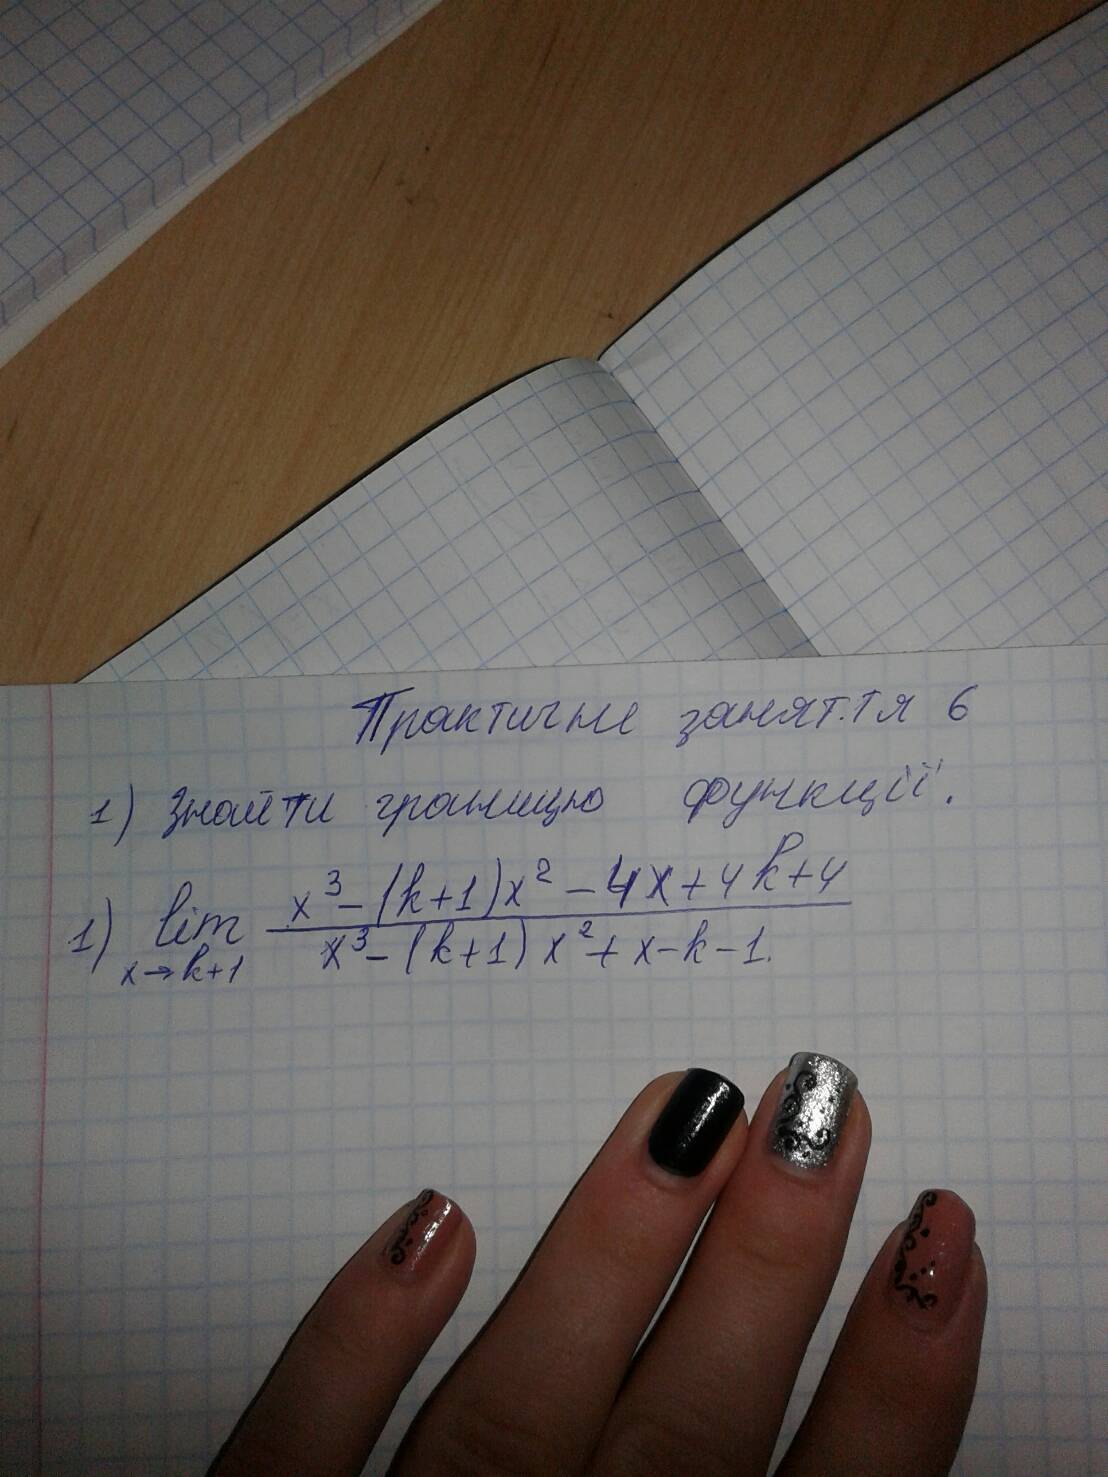 Практичне заняття 6
1) Знайти границю функції.
1) lim x→k+1 (x³-(k+1)x²-4x+4k+4)/(x³-(k+1)x²+x-k-1).